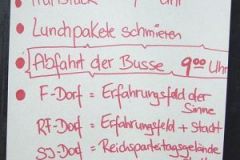 Frühstück 7 Uhr
• Lunchpakete schmieren
• Abfahrt der Busse 9⁰⁰ Uhr
• F-Dorf = Erfahrungsfeld der
Sinne
RF-Dorf = Erfahrungsfeld + Stadt
SJ-Dorf = Reichsparteitagsgelände